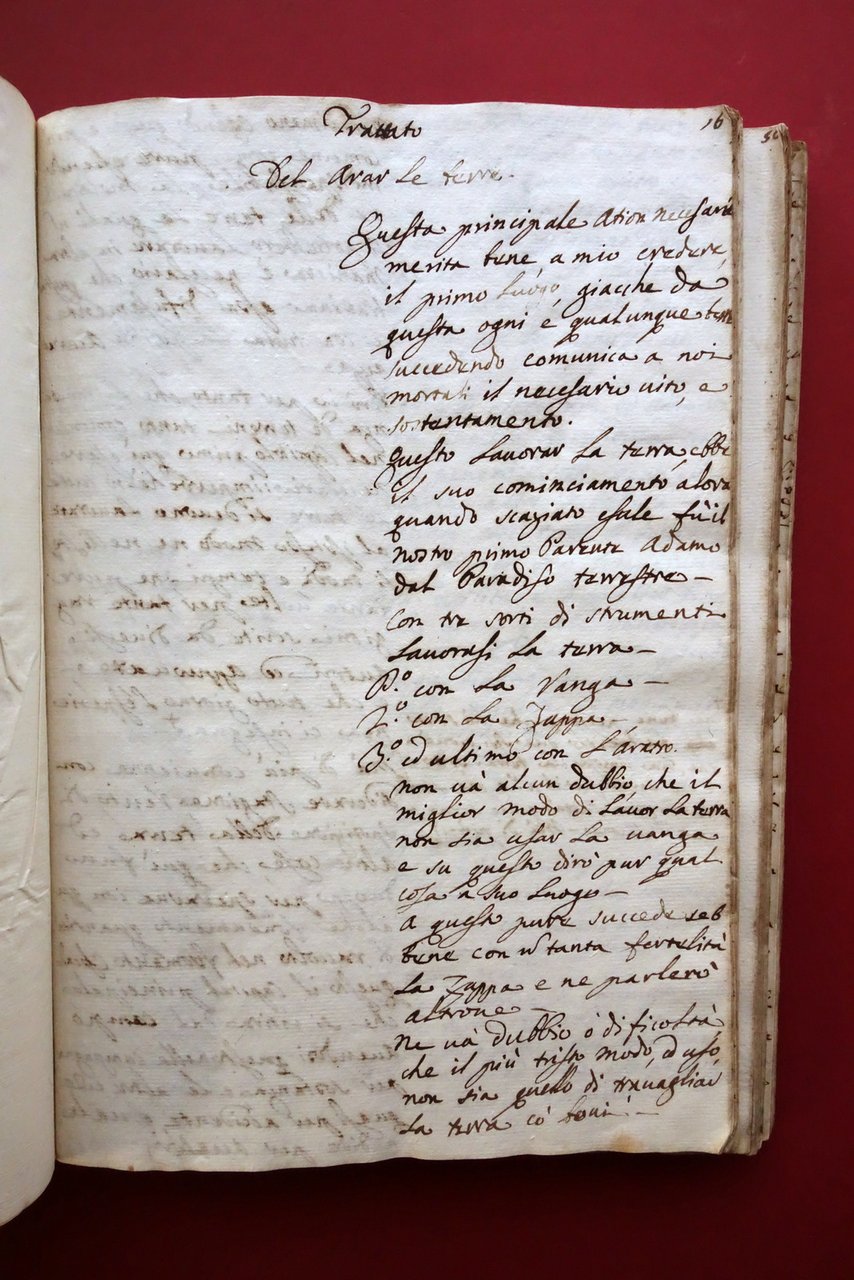 Trattato
16
Del Arar Le terre.
Questa principale Ation necesaria
merita bene, a mio credere,
il primo Luogo, giacche da
questa ogni e qualunque terra
succedendo comunica a noi
mortali il necesario uito, e
sostentamento.
Questo Lauorar La terra, ebbe
il suo cominciamento alora
quando scaziato esule fù il
nostro primo Parente Adamo
dal Paradiso terrestre —
Con tre sorti di strumenti
Lauorasi La terra —
P.º con La Vanga —
2.º con La Zappa —
3.º ed ultimo con L'aratro.
non uà alcun dubbio che il
miglior modo di Lauor La terra
non sia usar La uanga
e su questo dirò pur qual
cosa a suo Luogo —
A questa pure succede seb
bene con tanta fertelità
La Zappa e ne parlerò
altroue —
Ne uà dubbio ò dificoltà,
che il più tristo modo, ed uso,
non sia quello di trauagliar
La terra cò boui —